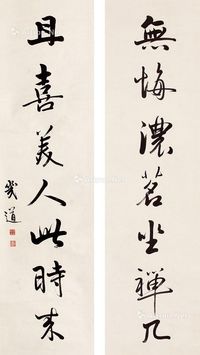 無悔濃茗坐禪几
且喜美人此時來
幾道